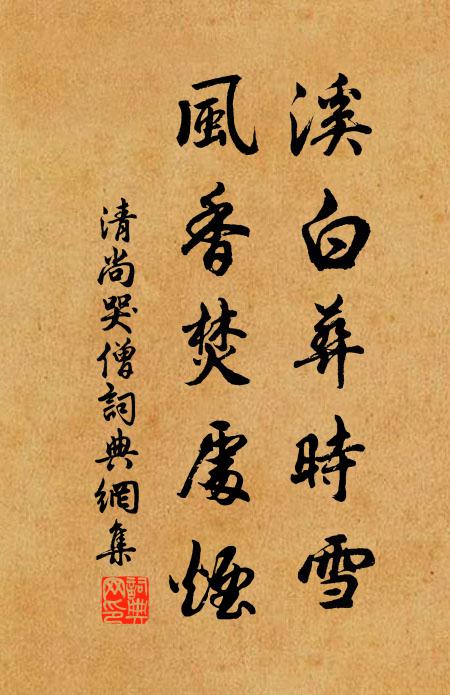 溪白葬時雪
風香焚處煙
清尚哭僧詞典網集
詞典网印